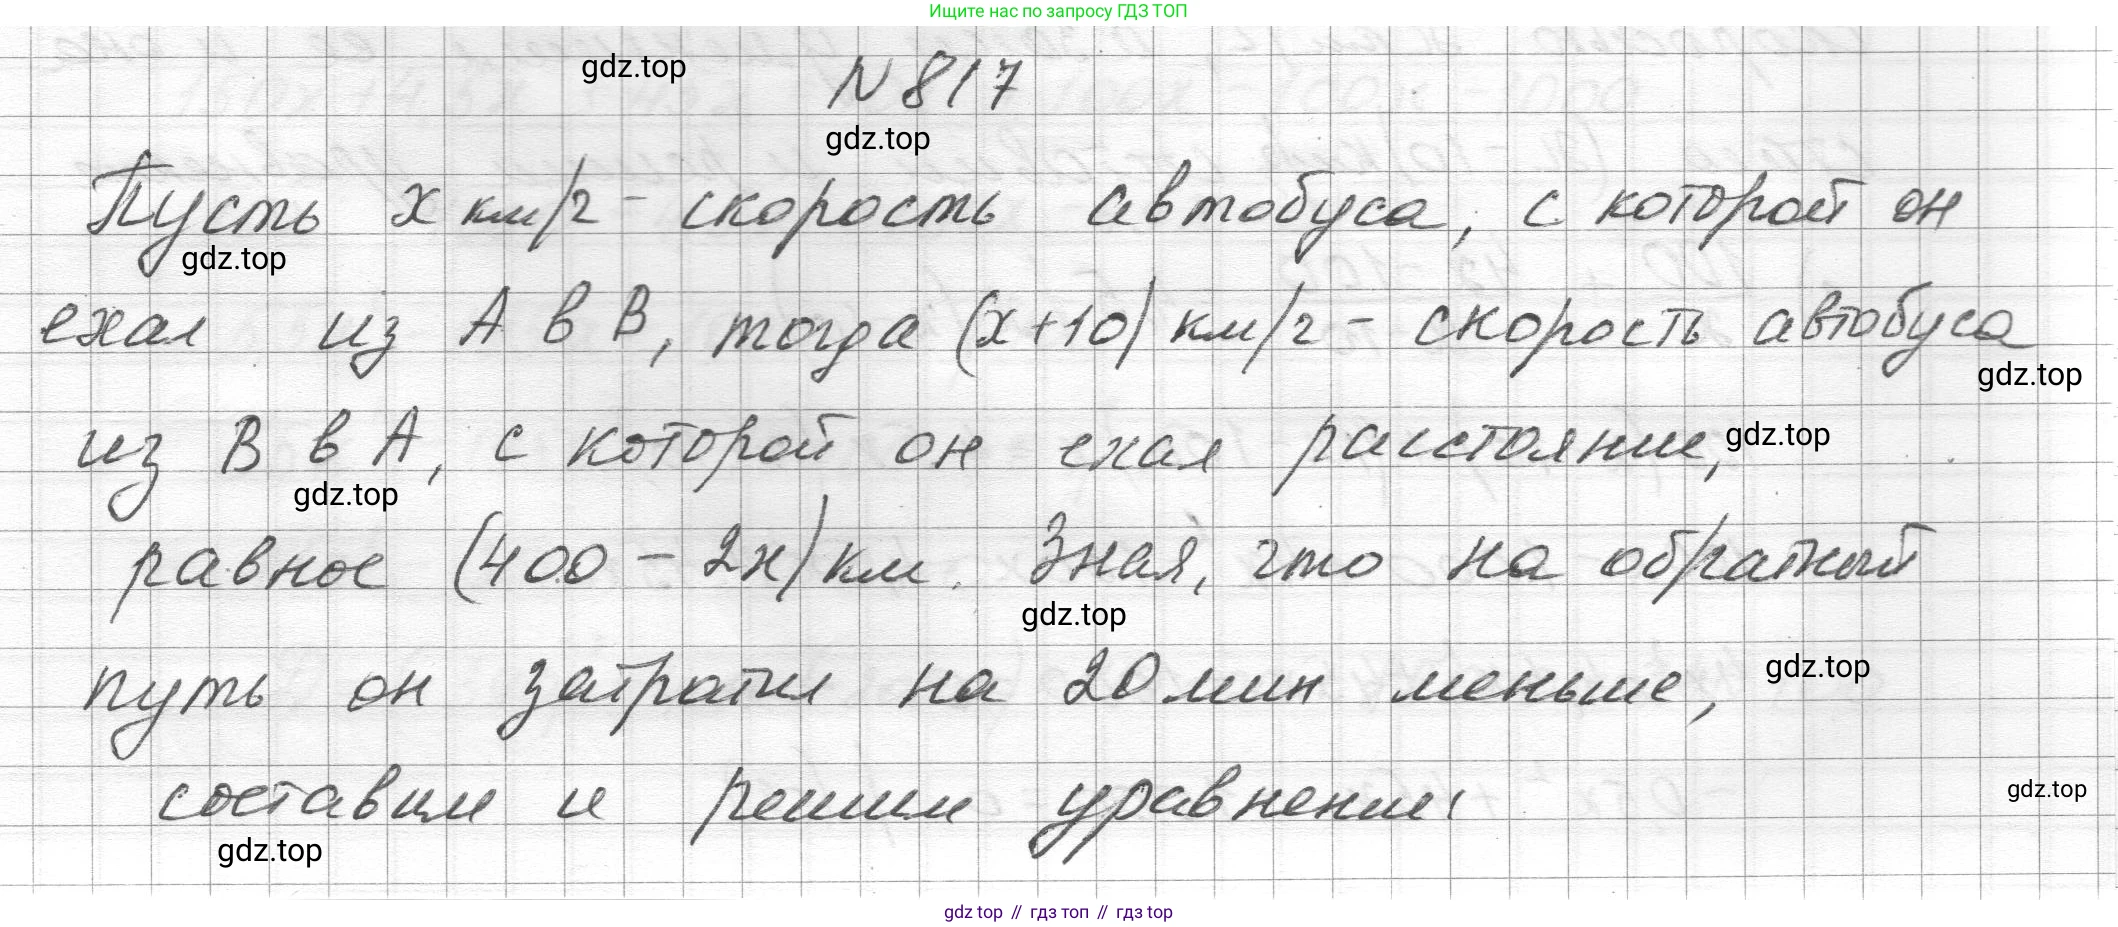 Ищите нас по запросу ГДЗ ТОП
gdz.top
N 817
gdz.top
Пусть x км/ч - скорость автобуса, с которой он
gdz.top
ехал из А в В, тогда (x+10) км/ч - скорость автобуса
gdz.top
из В в А, с которой он ехал расстояние,
gdz.top
gdz.top
равное (400 - 2x) км. Зная, что на обратный
gdz.top
путь он затратил на 20 мин меньше,
gdz.top
составим и решим уравнение:
gdz.top
gdz.top
gdz top // гдз топ // гдз top